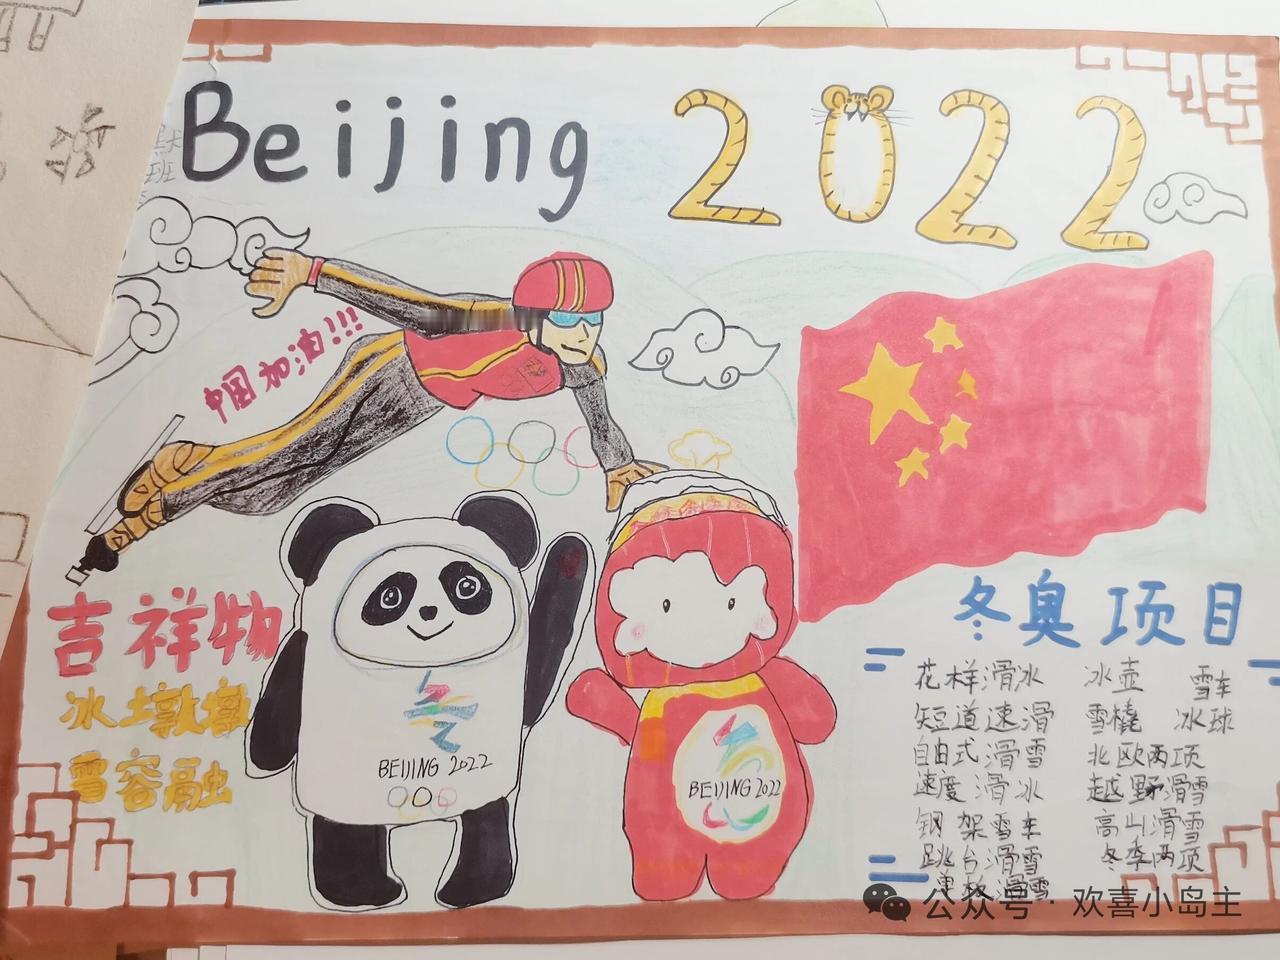 Beijing 2022
中国加油!!!
吉祥物
冰土墩墩
雪容融
BEIJING 2022
BEIJING 2022
冬奥项目
花样滑冰 冰壶 雪车
短道速滑 雪橇 冰球
自由式滑雪 北欧两项
速度滑冰 越野滑雪
钢架雪车 高山滑雪
跳台滑雪 冬季两项
单板滑雪
公众号·欢喜小岛主